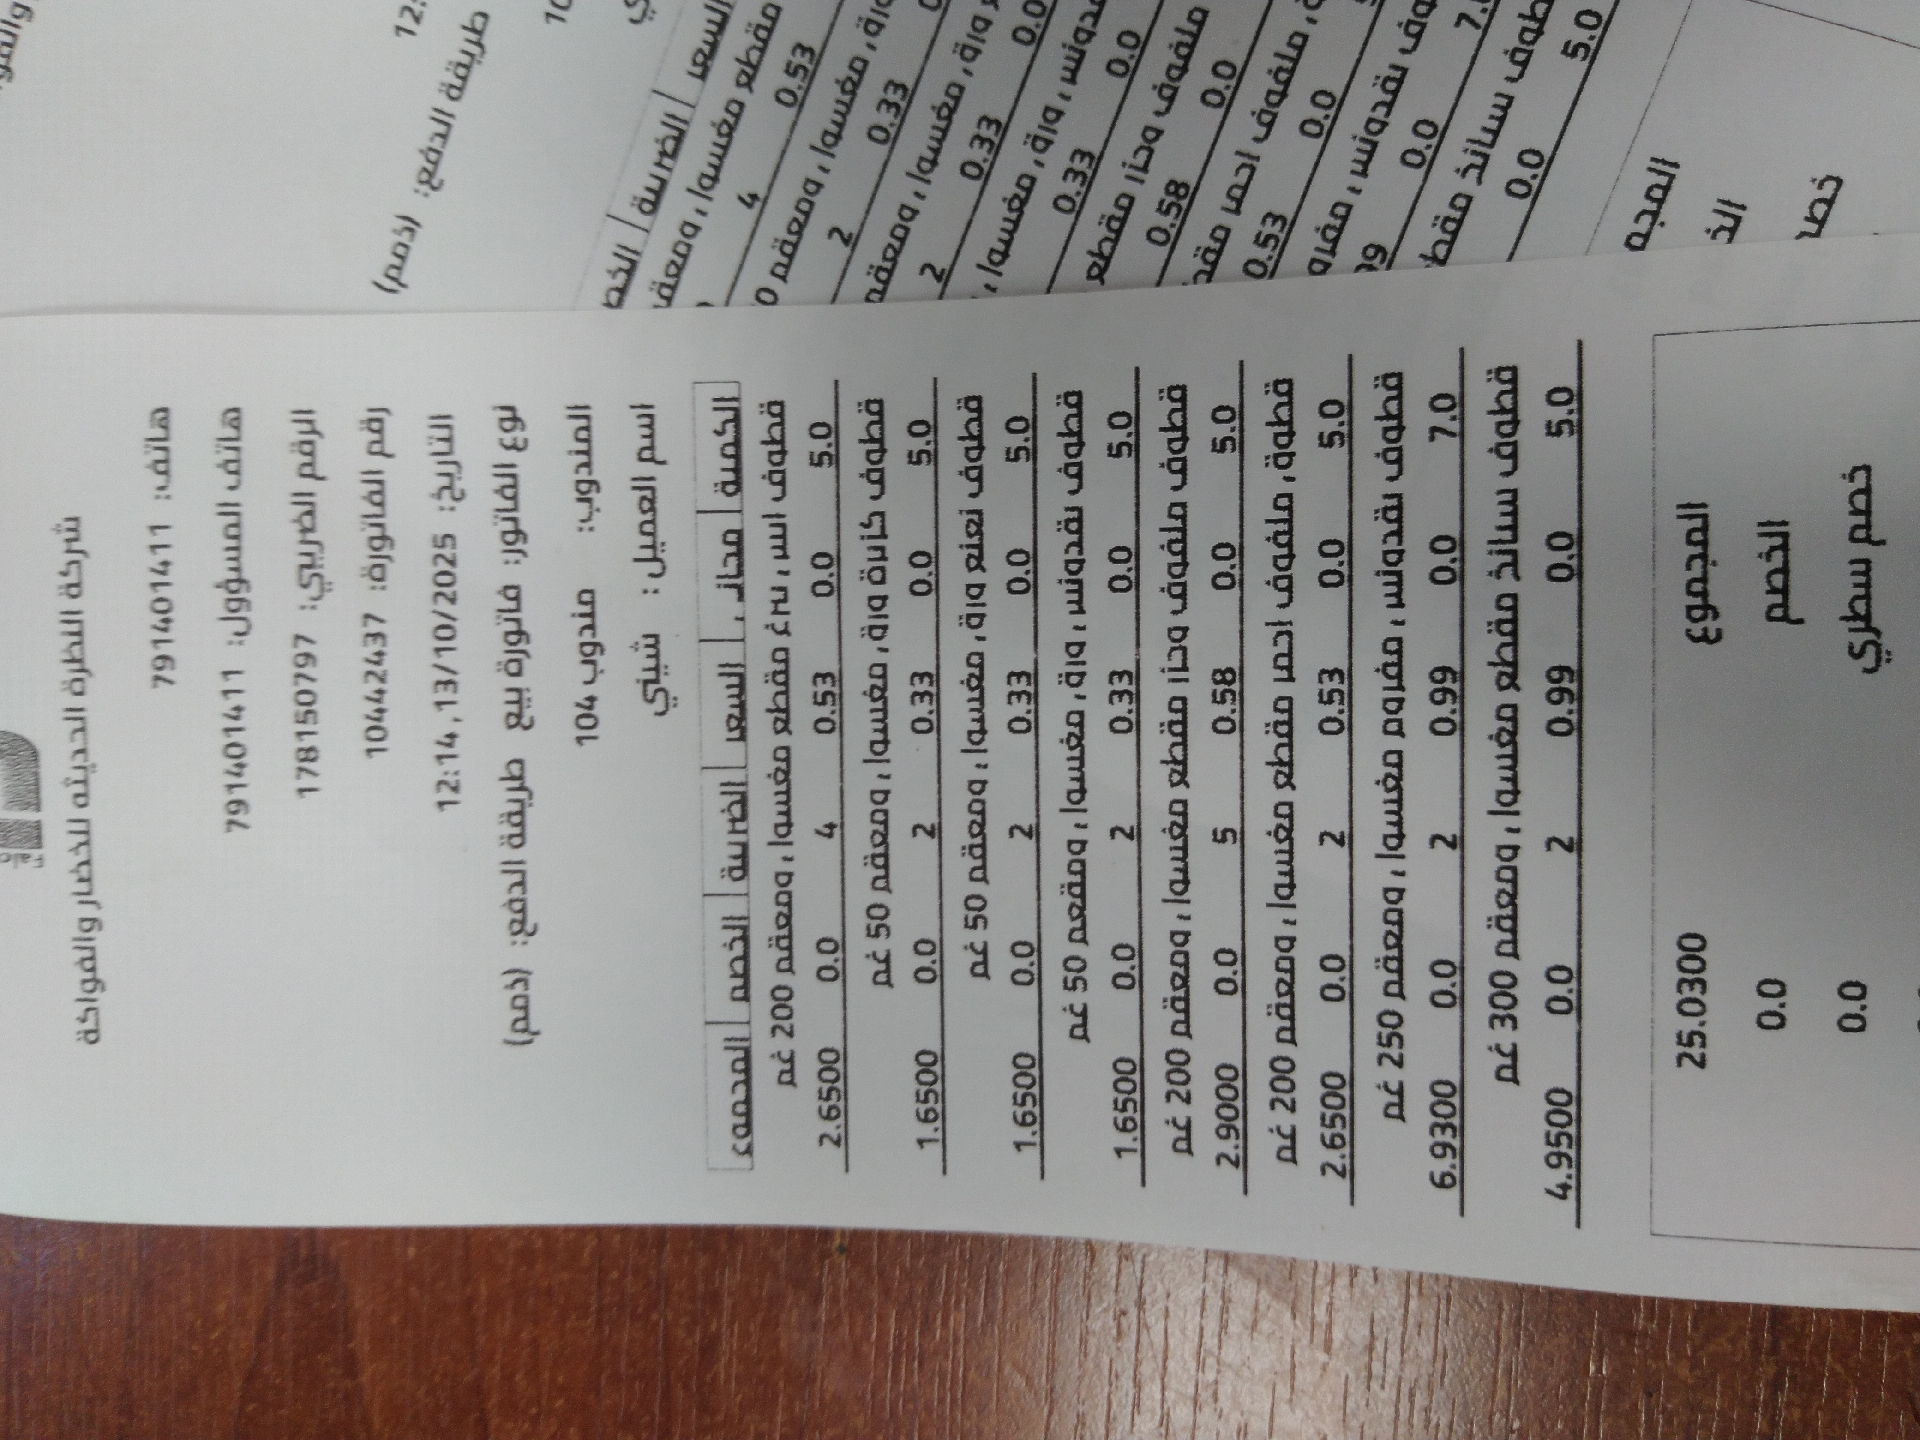 شركة النظرة الحديثه للخضار والفواكة
هاتف: 791401411
هاتف المسؤول: 791401411
الرقم الضريبي: 178150797
رقم الفاتورة: 10442437
التاريخ: 12:14 ,13/10/2025
نوع الفاتور: فاتورة بيع طريقة الدفع: (ذمم)
المندوب: مندوب 104
اسم العميل : شيني
الكمية السعر الضريبة الخصم المجموع
مقطع مغسول ومعقم 200 غم
5.0 0.0 0.53 4 0.0 2.6500
قطوف كزبرة ورق، مغسول ومعقم 50 غم
5.0 0.0 0.33 2 0.0 1.6500
قطوف نعنع ورق، مغسول ومعقم 50 غم
5.0 0.0 0.33 2 0.0 1.6500
قطوف بقدونس ورق، مغسول ومقعم 50 غم
5.0 0.0 0.33 2 0.0 1.6500
قطوف ملفوف وجزر مقطع مغسول ومعقم 200 غم
5.0 0.0 0.58 5 0.0 2.9000
ملفوف احمر مقطع مغسول ومعقم 200 غم
5.0 0.0 0.53 2 0.0 2.6500
قطوف بقدونس مفروم مغسول ومعقم 250 غم
7.0 0.0 0.99 2 0.0 6.9300
قطوف سبانخ مقطع مغسول ومعقم 300 غم
5.0 0.0 0.99 2 0.0 4.9500
المجموع 25.0300
الخصم 0.0
خصم سطري 0.0
طريقة الدفع: (ذمم)
السعر الضريبة
مقطع مغسول
0.53 4
0.33 2
0.33 2
0.0 0.33
0.0 0.58
0.0 0.53
0.0
5.0 0.0